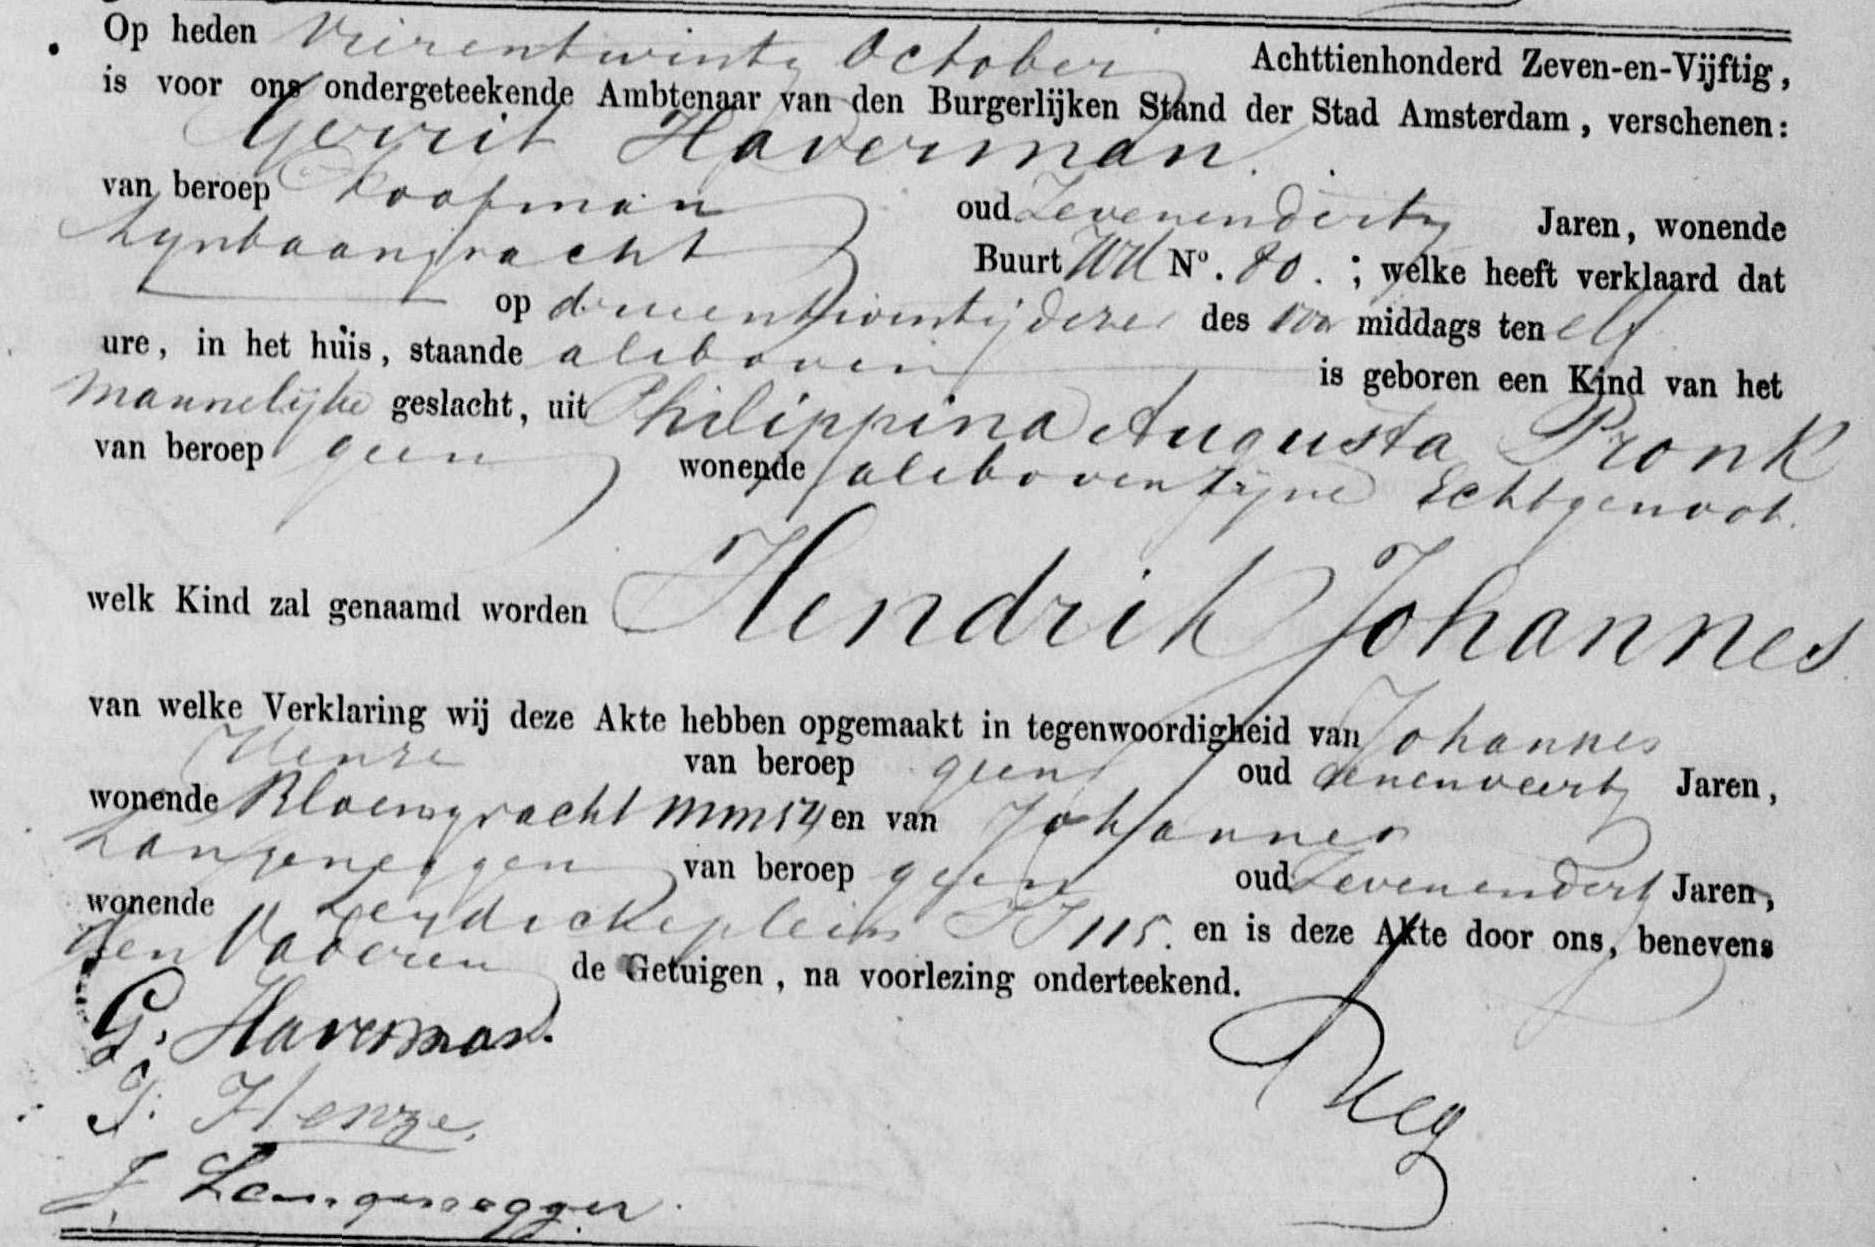 Op heden Vierentwintig October Achttienhonderd Zeven-en-Vijftig,
is voor ons ondergeteekende Ambtenaar van den Burgerlijken Stand der Stad Amsterdam, verschenen:
Gerrit Haverman
van beroep Koopman oud Zevenendertig Jaren, wonende
Lynbaangracht Buurt No. 80. ; welke heeft verklaard dat
op drieentwintigdezer des voor middags ten elf
ure, in het huis, staande alsboven is geboren een Kind van het
Mannelijke geslacht, uit Philippina Augusta Pronk
van beroep geen wonende alsboven zijne Echtgenoot.
welk Kind zal genaamd worden Hendrik Johannes
van welke Verklaring wij deze Akte hebben opgemaakt in tegenwoordigheid van Johannes
Henze van beroep geen oud eenenveertig Jaren,
wonende Bloemgracht MM 54 en van Johannes
Langenegger van beroep geen oud Zevenendertig Jaren,
wonende Leydscheplein JJ 115. en is deze Akte door ons, benevens
den Vader en de Getuigen, na voorlezing onderteekend.
G. Haverman.
J. Henze.
J. Langenegger